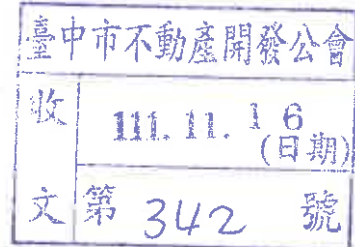 臺中市不動產開發公會
收文
111. 11. 16
(日期)
第 342 號